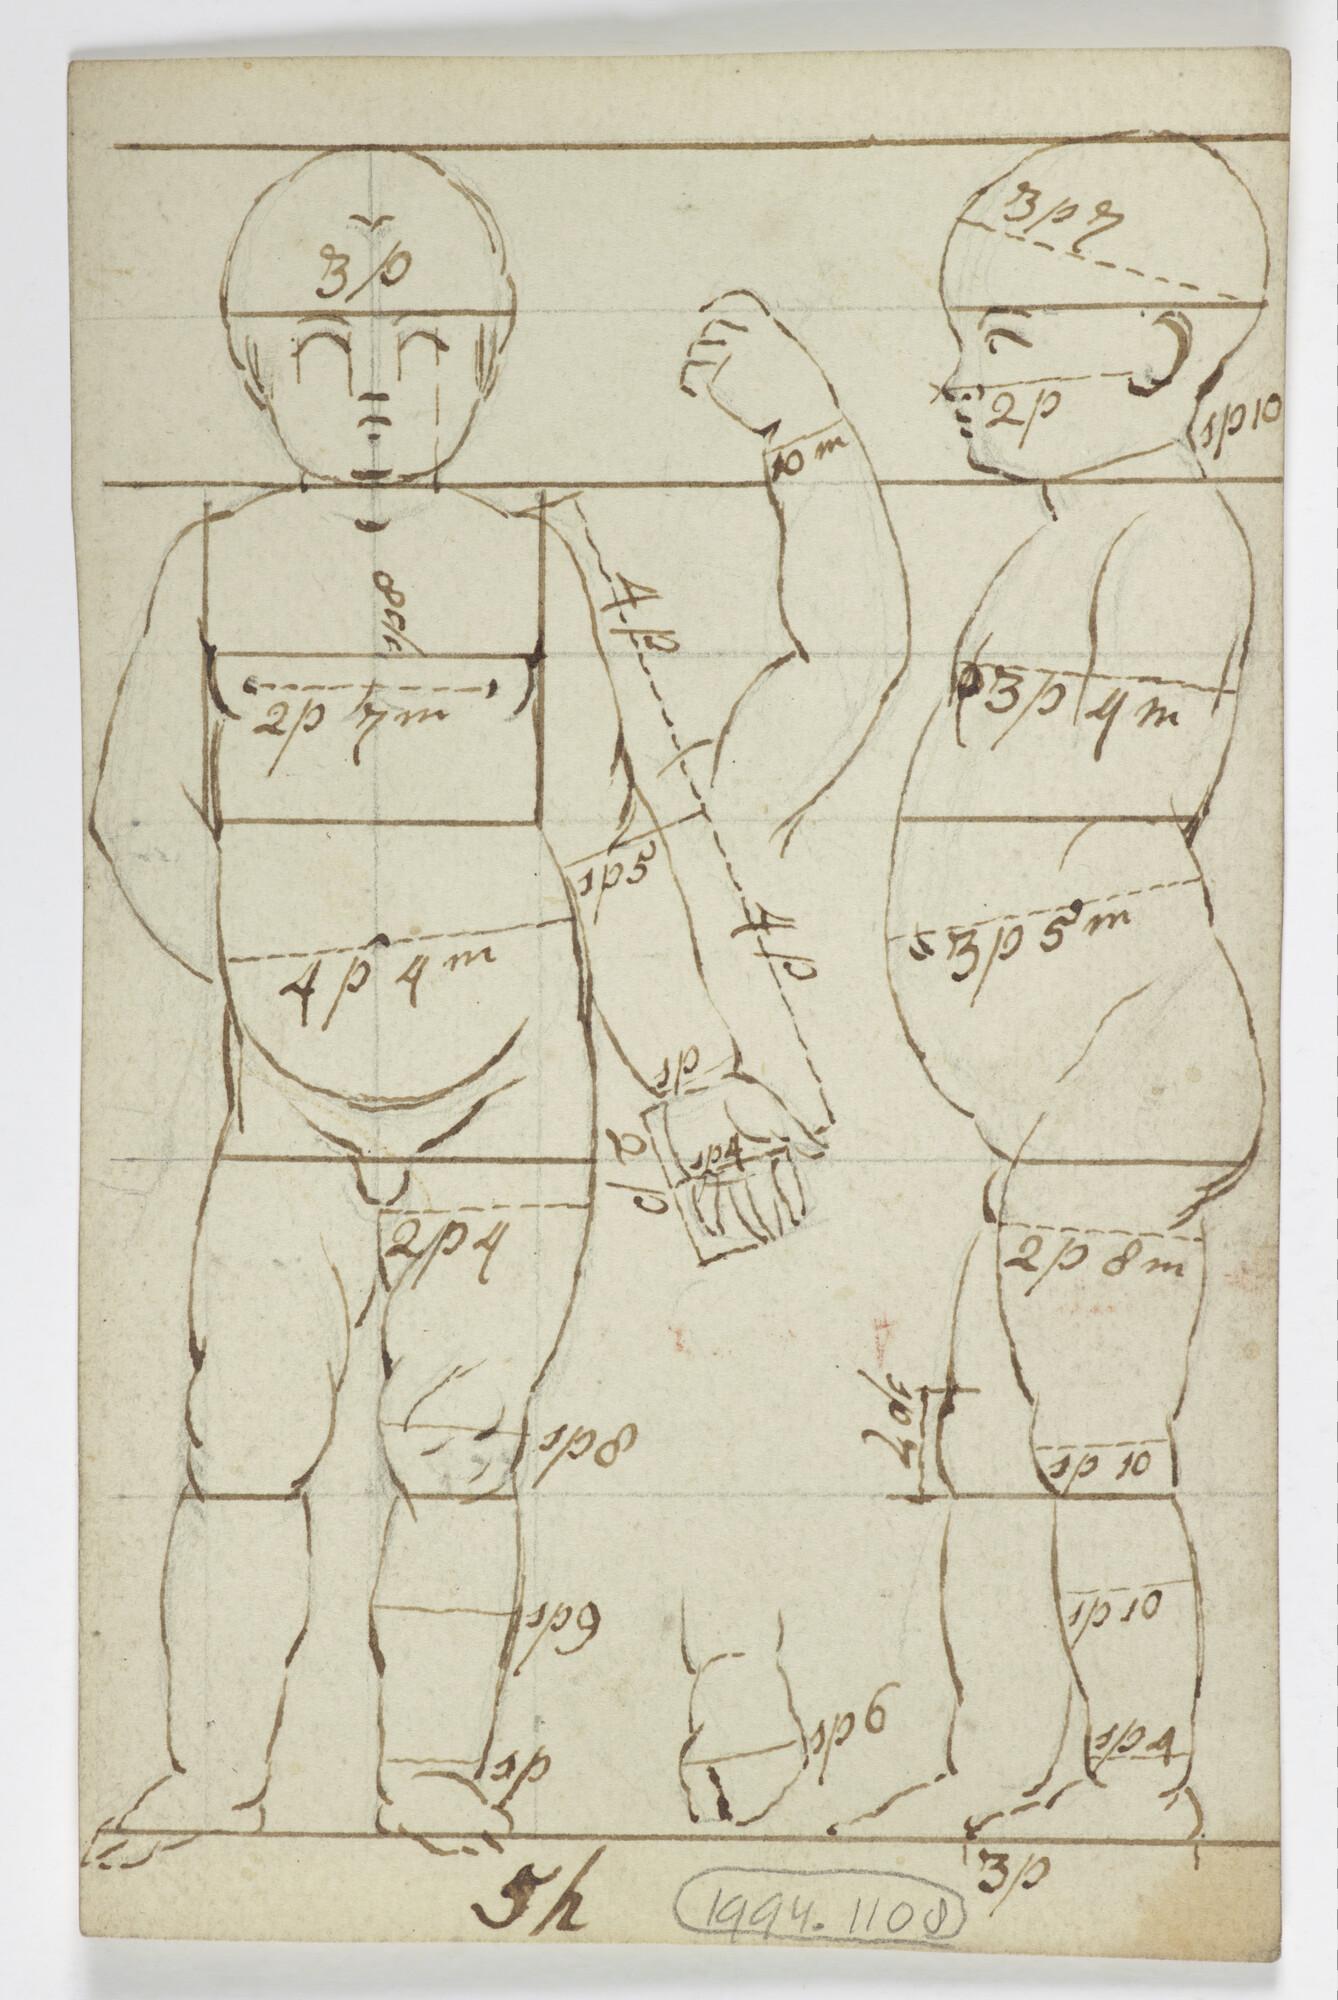 3p
3p 7
2p
1p10
10 m
4p
2p 7m
3p 4m
1p5
4p
4p 4m
3p 5m
1p
2p
1p4
2p4
2p 8m
1p8
1p10
1p6
1p10
1p
1p9
1p4
3p
5h
1994.1108